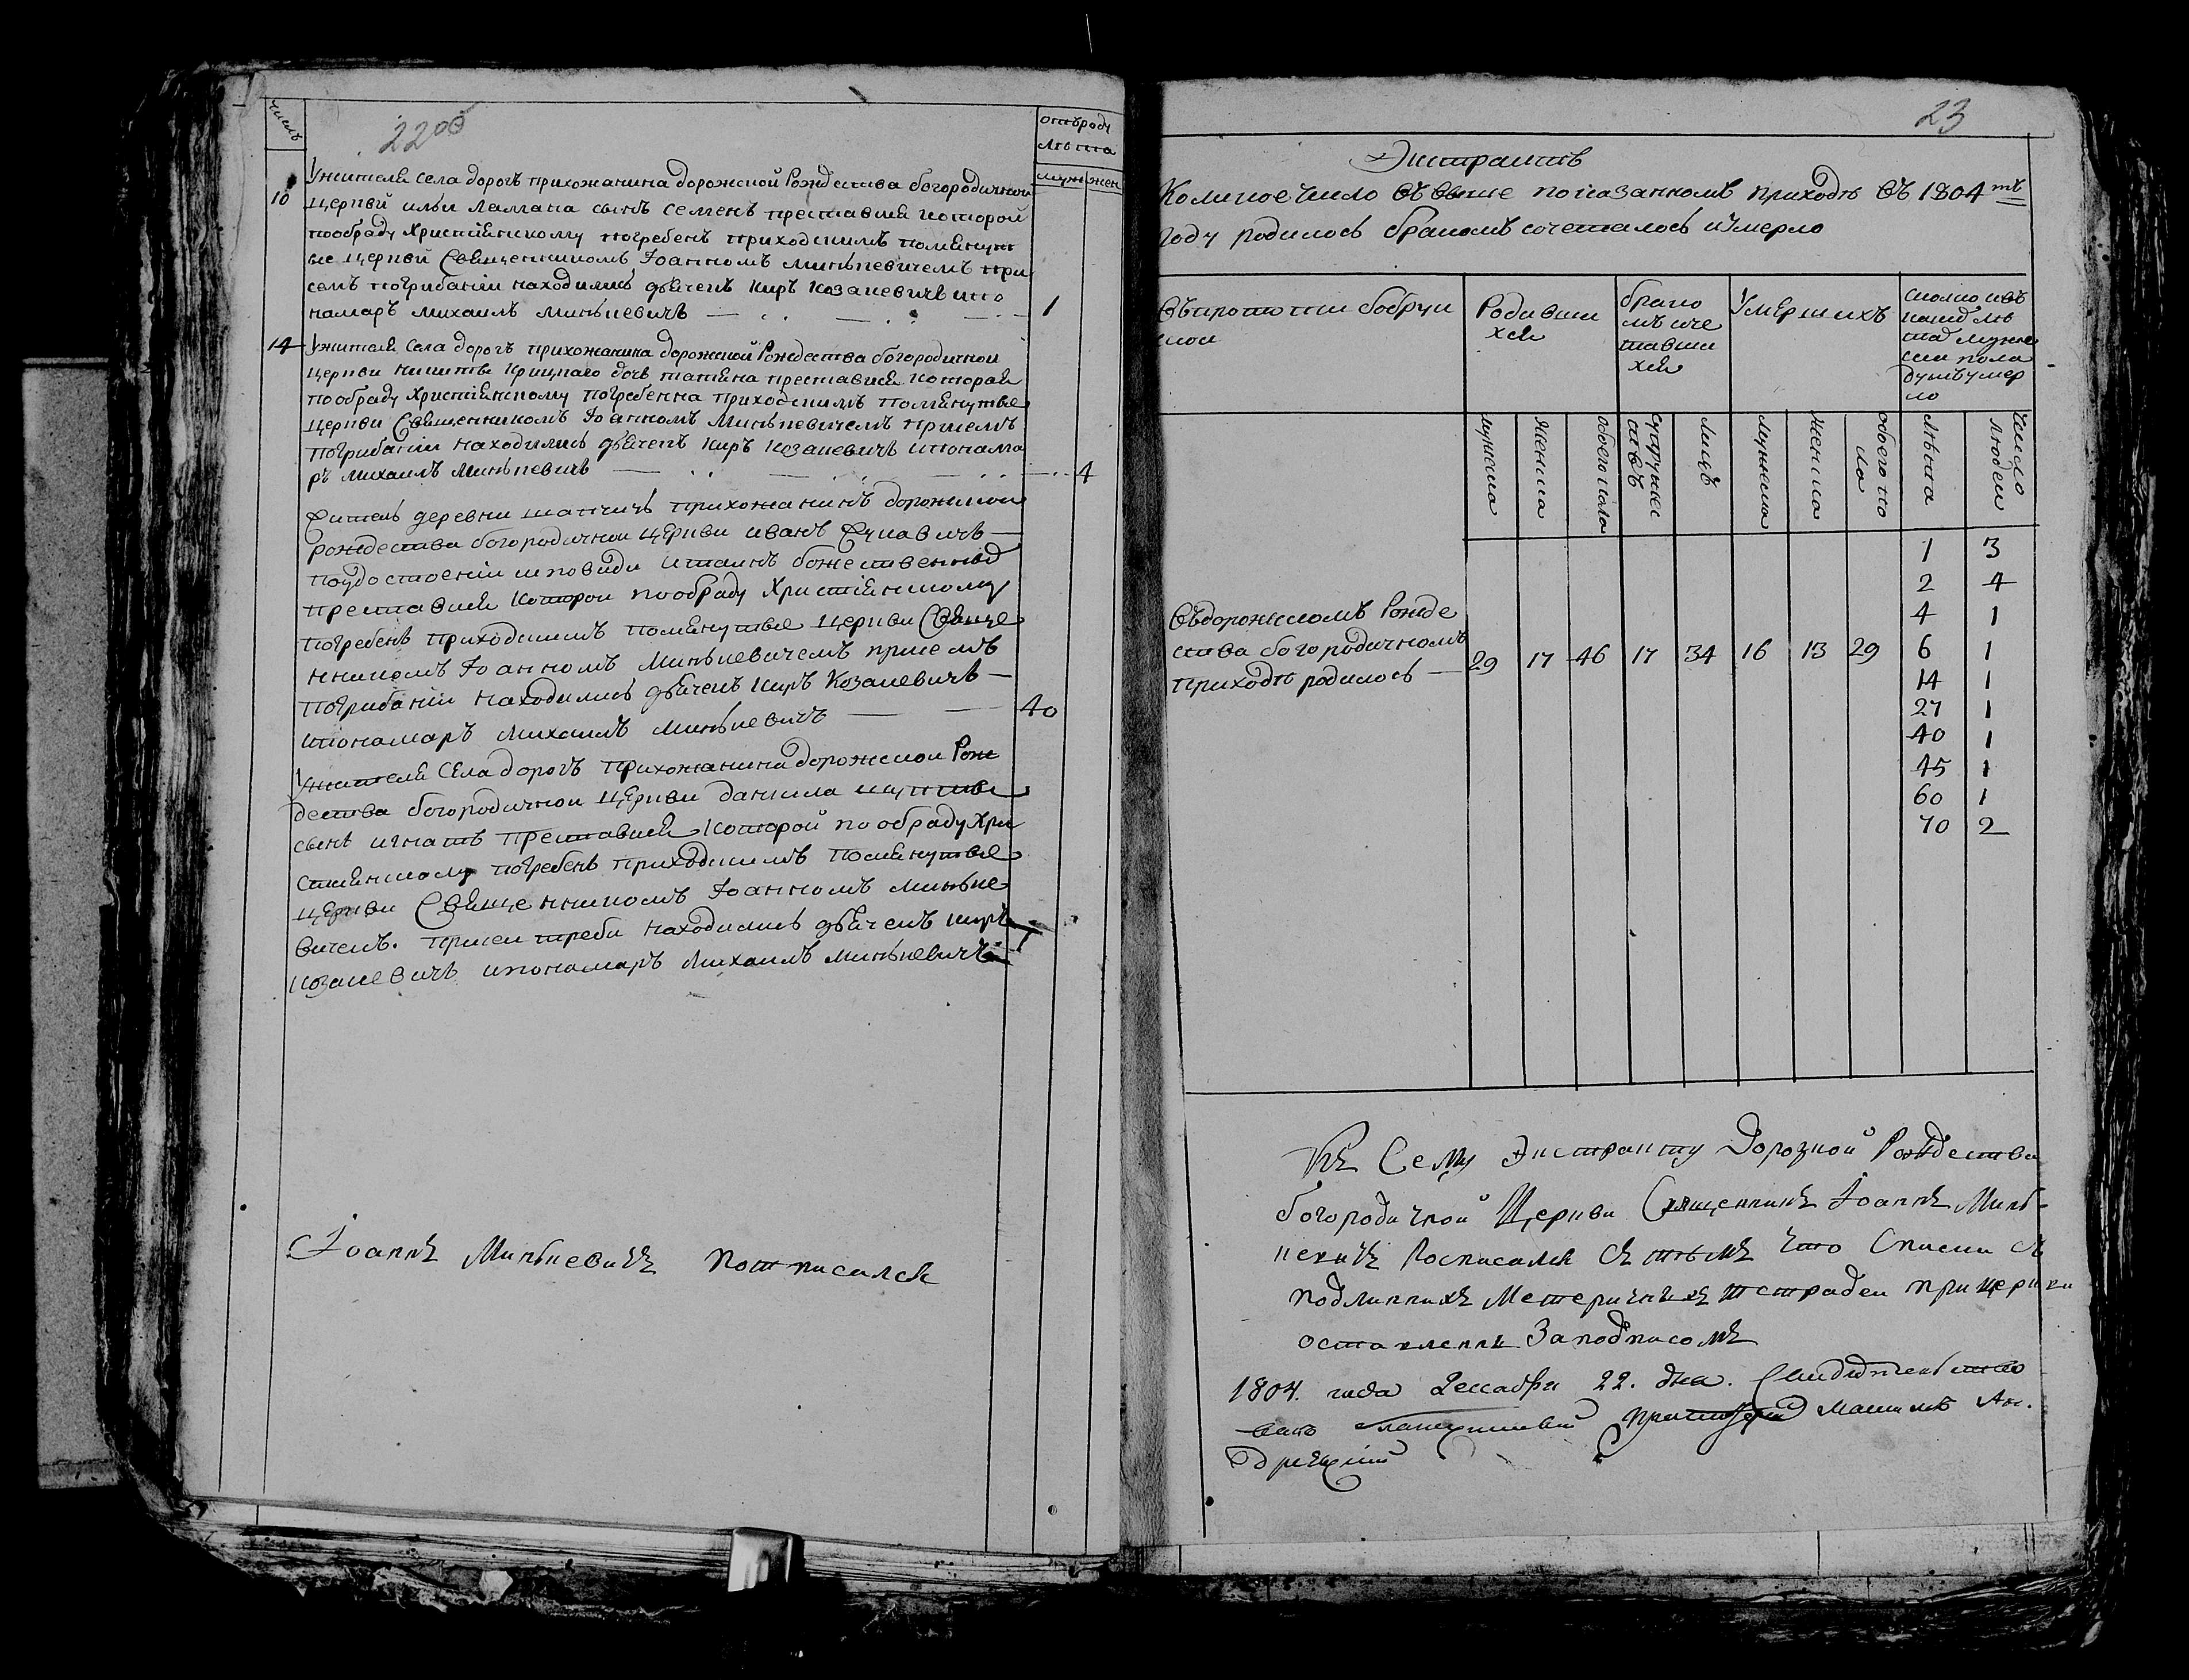 числъ
22об
отъроду
лѣта
муж жен
10
Ужителя села дорогъ прихожанина дорожской Рождества богородичной
церкви ильи Лаппана сынъ семенъ преставися которой
пообряду Христіянскому погребенъ приходскимъ помянут
ые церкви Священникомъ Іоанномъ Минькевичемъ при
семъ погрибаніи находились дьяченъ киръ козакевичъ ипо
намаръ михаилъ минькевичъ 1
14
Ужителя села дорогъ прихожанина дорожской Рождества богородичной
церкви никиты Крицкаго дочь татяна преставися которая
пообряду Христіянскому погребенна приходскимъ помянутые
церкви Священникомъ Іоанномъ Минькевичемъ присемъ
погрибаніи находились дьяченъ киръ козакевичъ ипонама
ръ михаилъ минькевичъ 4
житель деревни прихожанинъ дорожской
рождества богородичной церкви иванъ
поудостоеніи исповиди итаинъ божественныхъ
преставися которои пообряду Христіянскому
погребенъ приходскимъ помянутые церкви Свяще
нникомъ Іоанномъ Минькевичемъ присемъ
погрибаніи находились дьяченъ киръ Козакевичъ
ипонамаръ михаилъ минькевичъ 40
Ужителя села дорогъ прихожанина дорожскои Рож
дества богородичнои церкви данила
сынъ игнатъ преставися которой пообряду Хри
стиянскому погребенъ приходскимъ помянутые
церкви Священникомъ Іоанномъ минькe
вичемъ. присеи треби находились дьяченъ киръ
козакевичъ ипонамаръ михаилъ минькевичъ 1
Іоаннъ Минькевичъ потписался
23
Экстрактъ
Коликое число въвыше показанномъ приходѣ въ 1804мъ
году родилось бракомъ сочеталось иумерло
Въпротопіи бобруи
скои
Родивши
хся
брако
мъ соче
тавши
хся
Умершихъ
сколко изъ
коихъ лѣ
та мужес
ска пола
душъ умер
ло
мужеска
женска
обоего пола
супружес
твъ
лицъ
мужеска
женска
обоего по
ла
лѣта
Число
людеи
Въдорожскомъ Рожде
ства богородичномъ
приходѣ родилось 29 17 46 17 34 16 13 29
1 3
2 4
4 1
6 1
14 1
27 1
40 1
45 1
60 1
70 2
Къ Сему Экстракту Дорозкой Рождества
богородичной Церкви Священникъ Іоаннъ Минь-
кевичъ Росписался Съ тѣмъ что Списки Съ
подлинныхъ Метеричныхъ тетрадеи при церкви
оставлены Заподписомъ
1804. года Декабря 22. дня. Свидѣтельство
валъ Протоіерей Максимъ Ан.